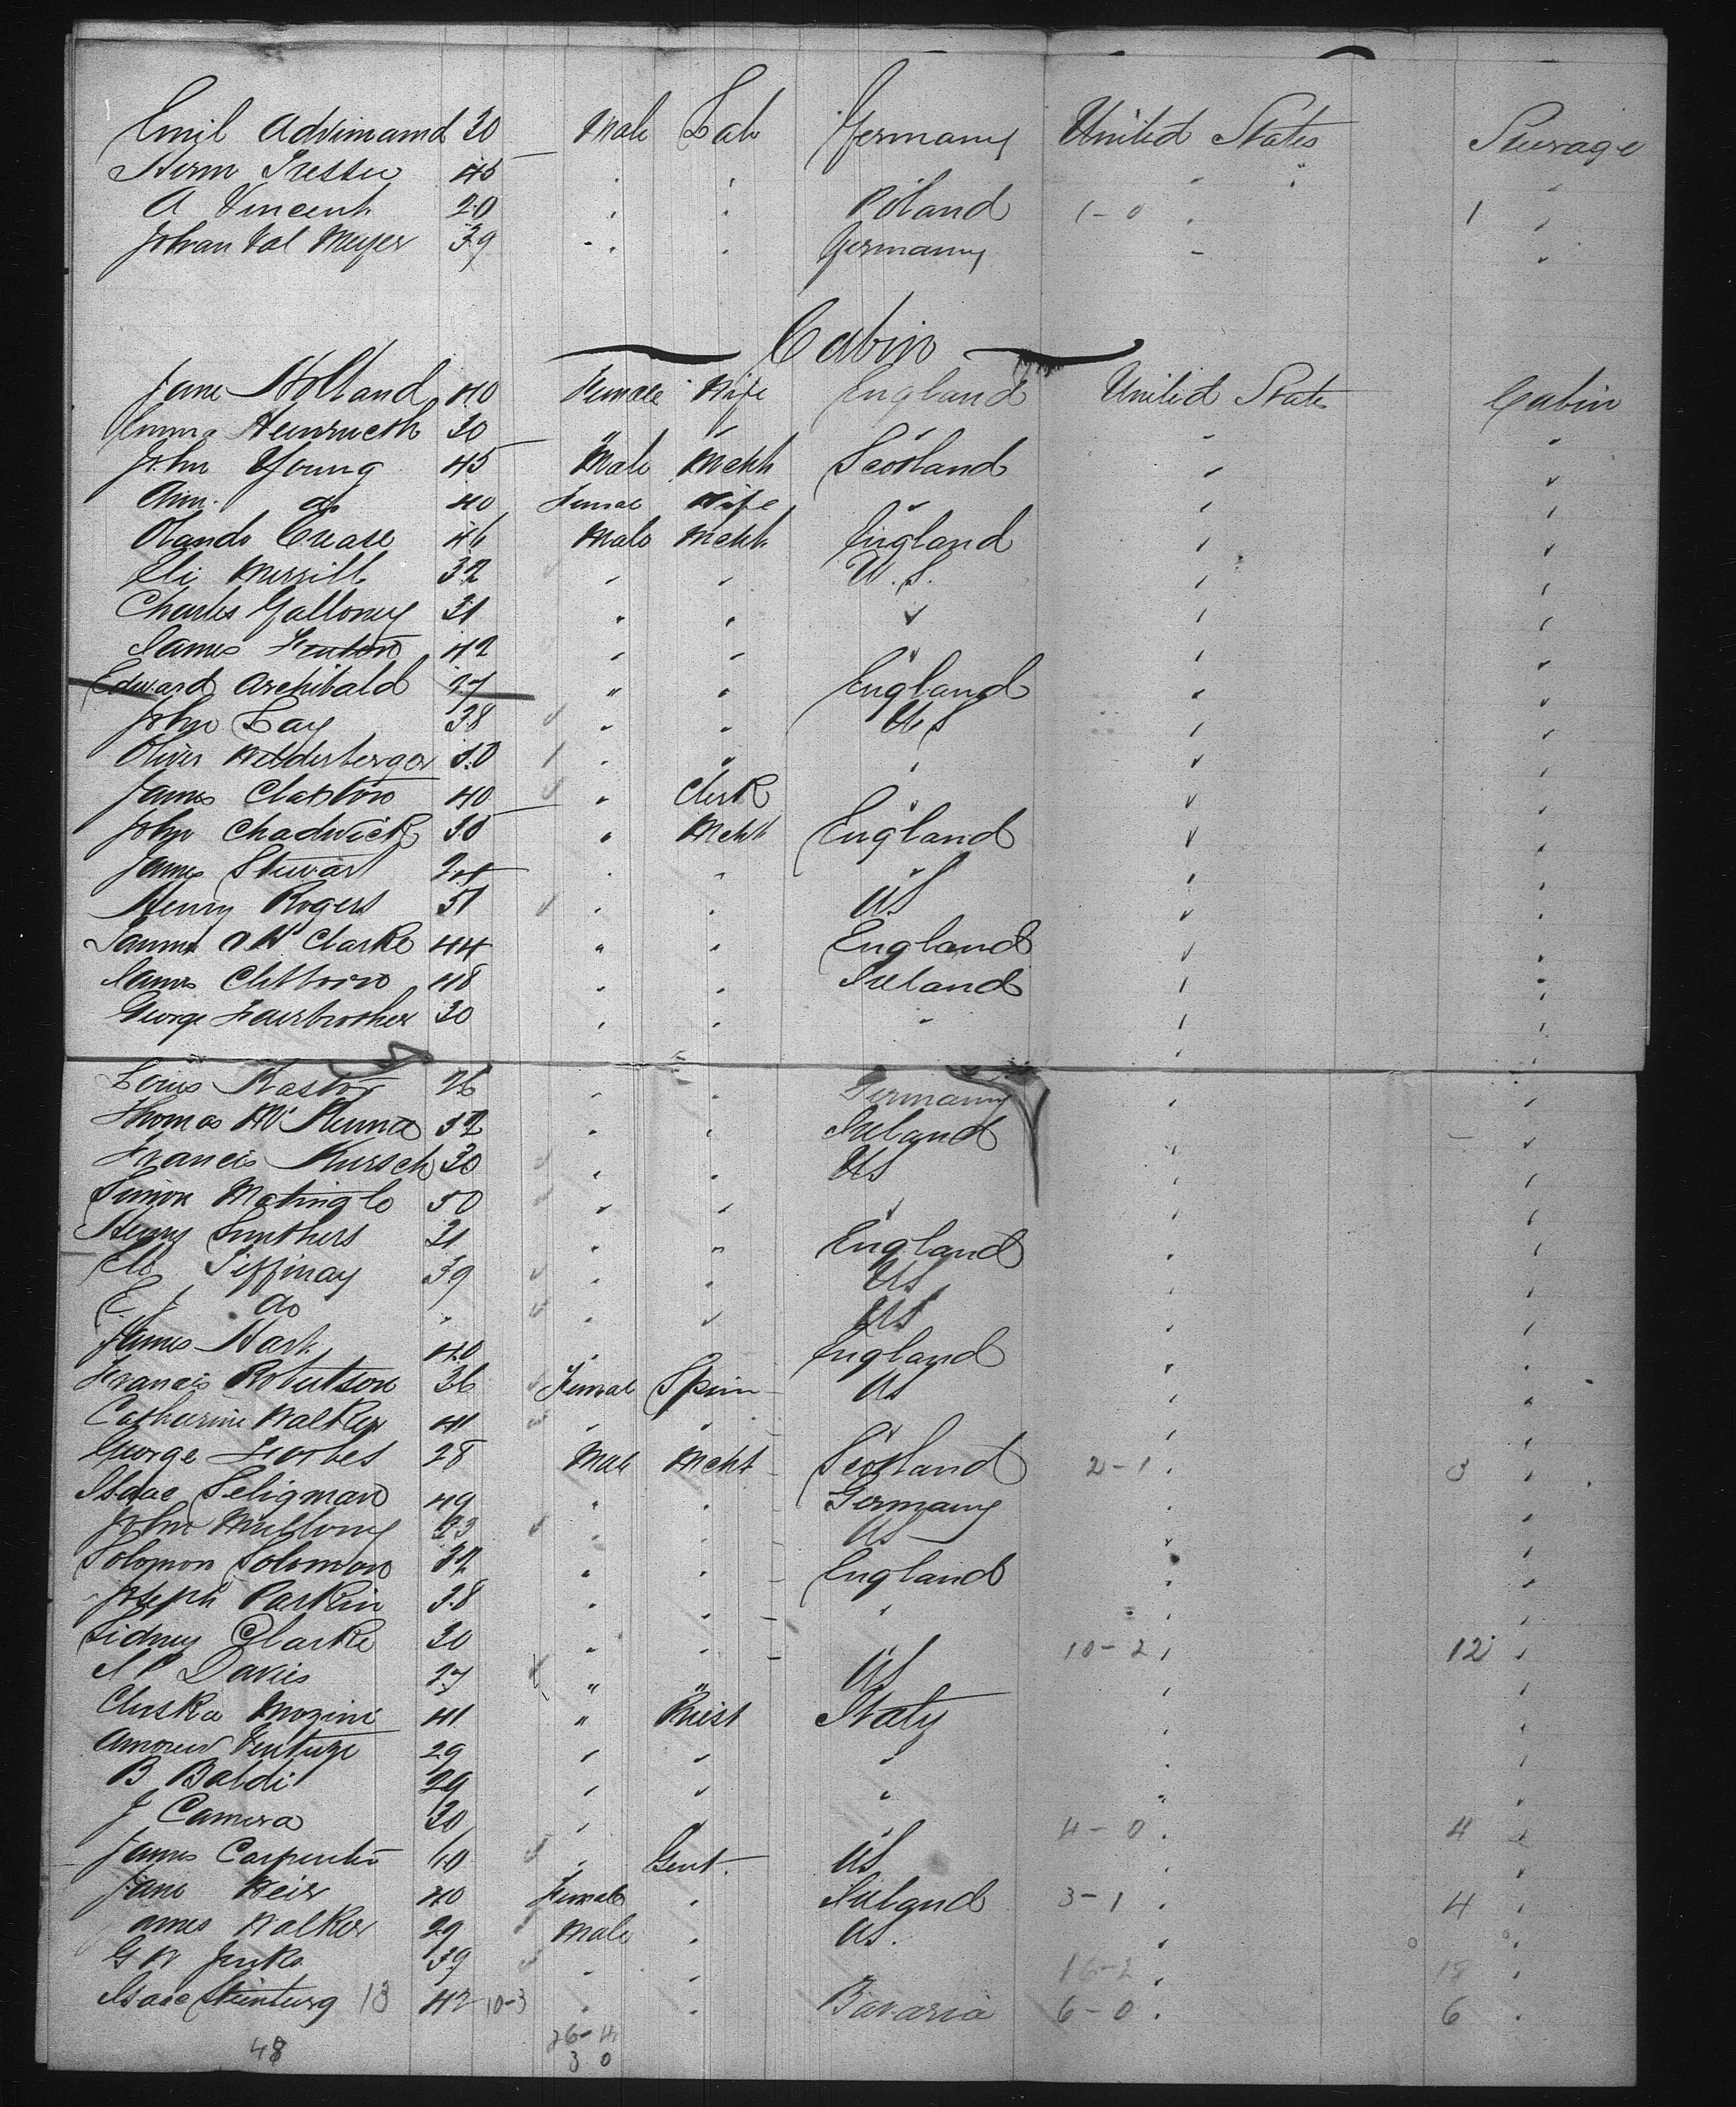 Emil 30 Male Lab Germany United States Steerage
Herm 45 " " " " " "
A Vincent 20 " " Poland 1-0 " 1 "
Johan Val Meyer 39 " " Germany " "
Cabin
Jane Holland 40 Female Wife England United States Cabin
Emma 30 " " " " "
John Young 45 Male Mcht Scotland " "
Ann do 40 Female Wife " " "
Olando Crease 46 Male Mcht England " "
Eli Merrill 32 " " U.S. " "
Charles Galloney 31 " " " " "
James Fenton 42 " " " " "
Edward Archibald 27 " " England " "
John Lay 38 " " US " "
Oliver 50 " " " " "
James Claxton 40 " Clerk " " "
John Chadwick 35 " Mcht England " "
James Stewart 24 " " " " "
Henry Rogers 51 " " US " "
Clarke 44 " " England " "
James Clibborn 48 " " Ireland " "
George Fairbrother 30 " " " " "
Louis Kastor 26 " " Germany " "
Thomas McKenna 32 " " Ireland " "
Francis Kursch 30 " " US " "
Simon Matingle 50 " " " " "
Henry Smithers 31 " " England " "
Eli Tiffinay 39 " " US " "
E J do " " " US " "
James Hart 40 " England " "
Francis Robertson 36 Female Spin US " "
Catherine Walker 41 " " " "
George Forbes 28 Male Mcht Scotland 2-1 " 3 "
Isaac Seligman 49 " " Germany " "
John Mullony 33 " " US " "
Solomon Solomon 32 " " England " "
Joseph Parkin 38 " " " " "
Sidney Clarke 30 " " " 10-2 " 12 "
S P Davies 27 " " US " "
Mozini 41 " Priest Italy " "
Andrew Ventuze 29 " " " " "
B Baldi 29 " " " " "
J Camera 30 " " " 4-0 " 4 "
James Carpenter 60 " Gent. US " "
Jane Weir 40 Female " Ireland 3-1 " 4 "
James Walker 29 Male " US. " "
G W Jenks 39 " " " 16-2 " 18 "
Isaac Steinburg 13 42 10-3 " " Bavaria 6-0 " 6 "
48 26-4
3 0